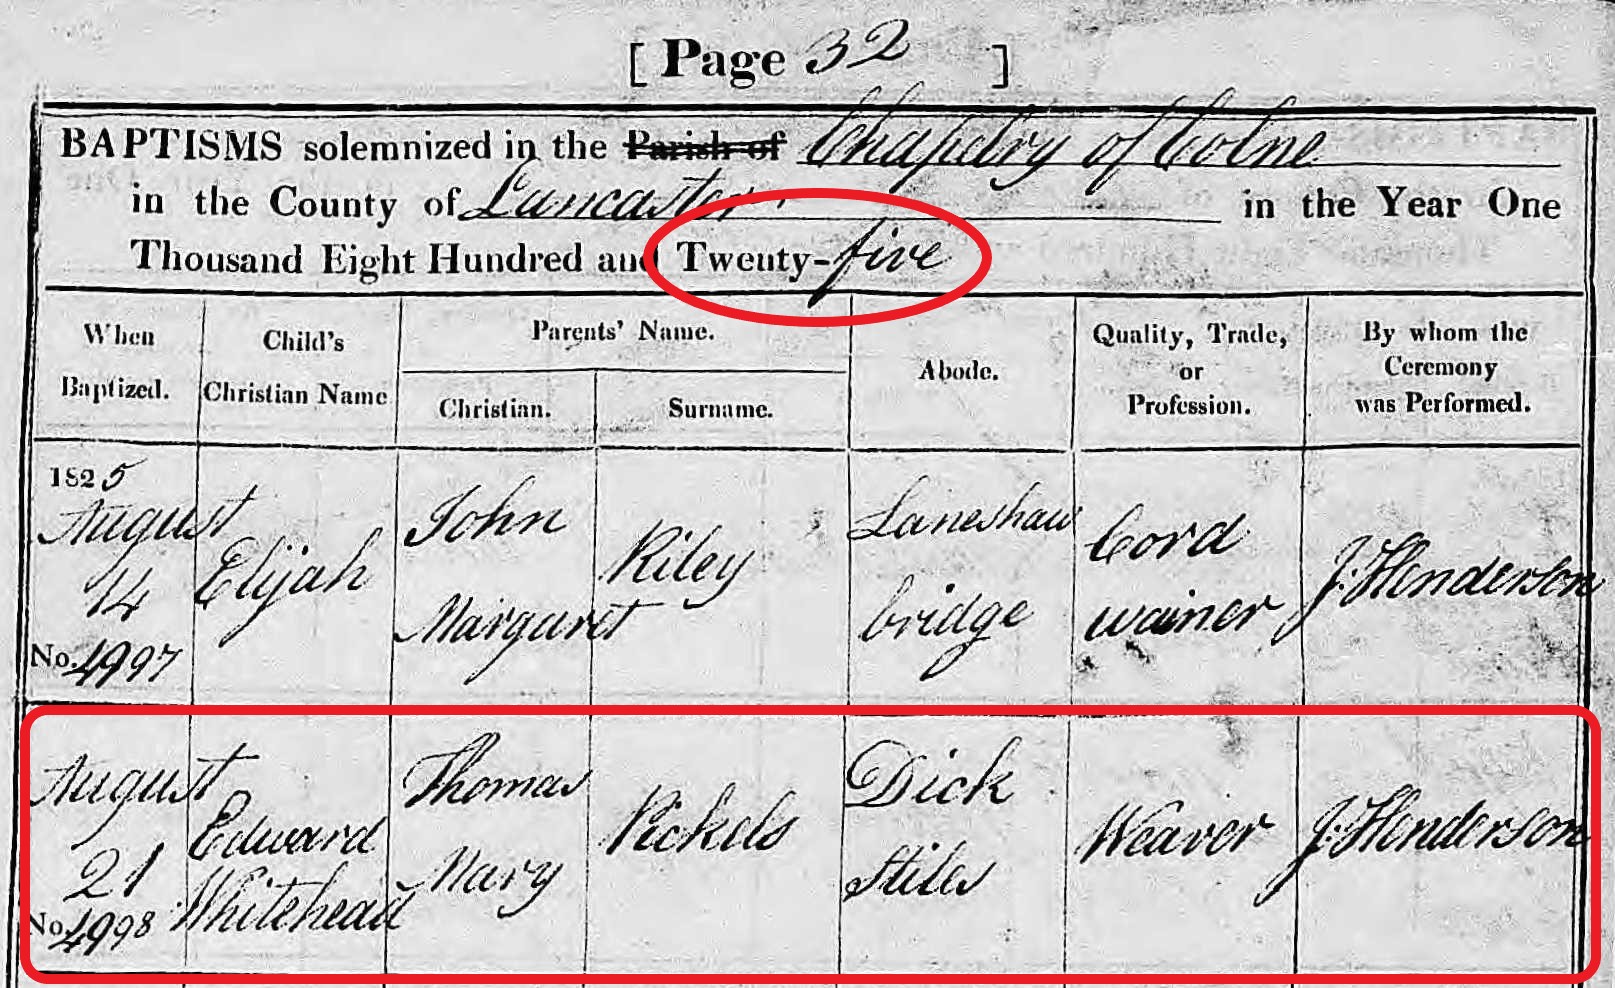 [ Page 32 ]
BAPTISMS solemnized in the Parish of Chapelry of Colne
in the County of Lancaster in the Year One
Thousand Eight Hundred and Twenty-five
When Baptized.
Child's Christian Name
Parents' Name.
Christian.
Surname.
Abode.
Quality, Trade, or Profession.
By whom the Ceremony was Performed.
1825
August 14
No. 4997
Elijah
John
Margaret
Riley
Laneshaw
bridge
Cord
wainer
J. Henderson
August 21
No. 4998
Edward
Whitehead
Thomas
Mary
Pickels
Dick
Stiles
Weaver
J. Henderson